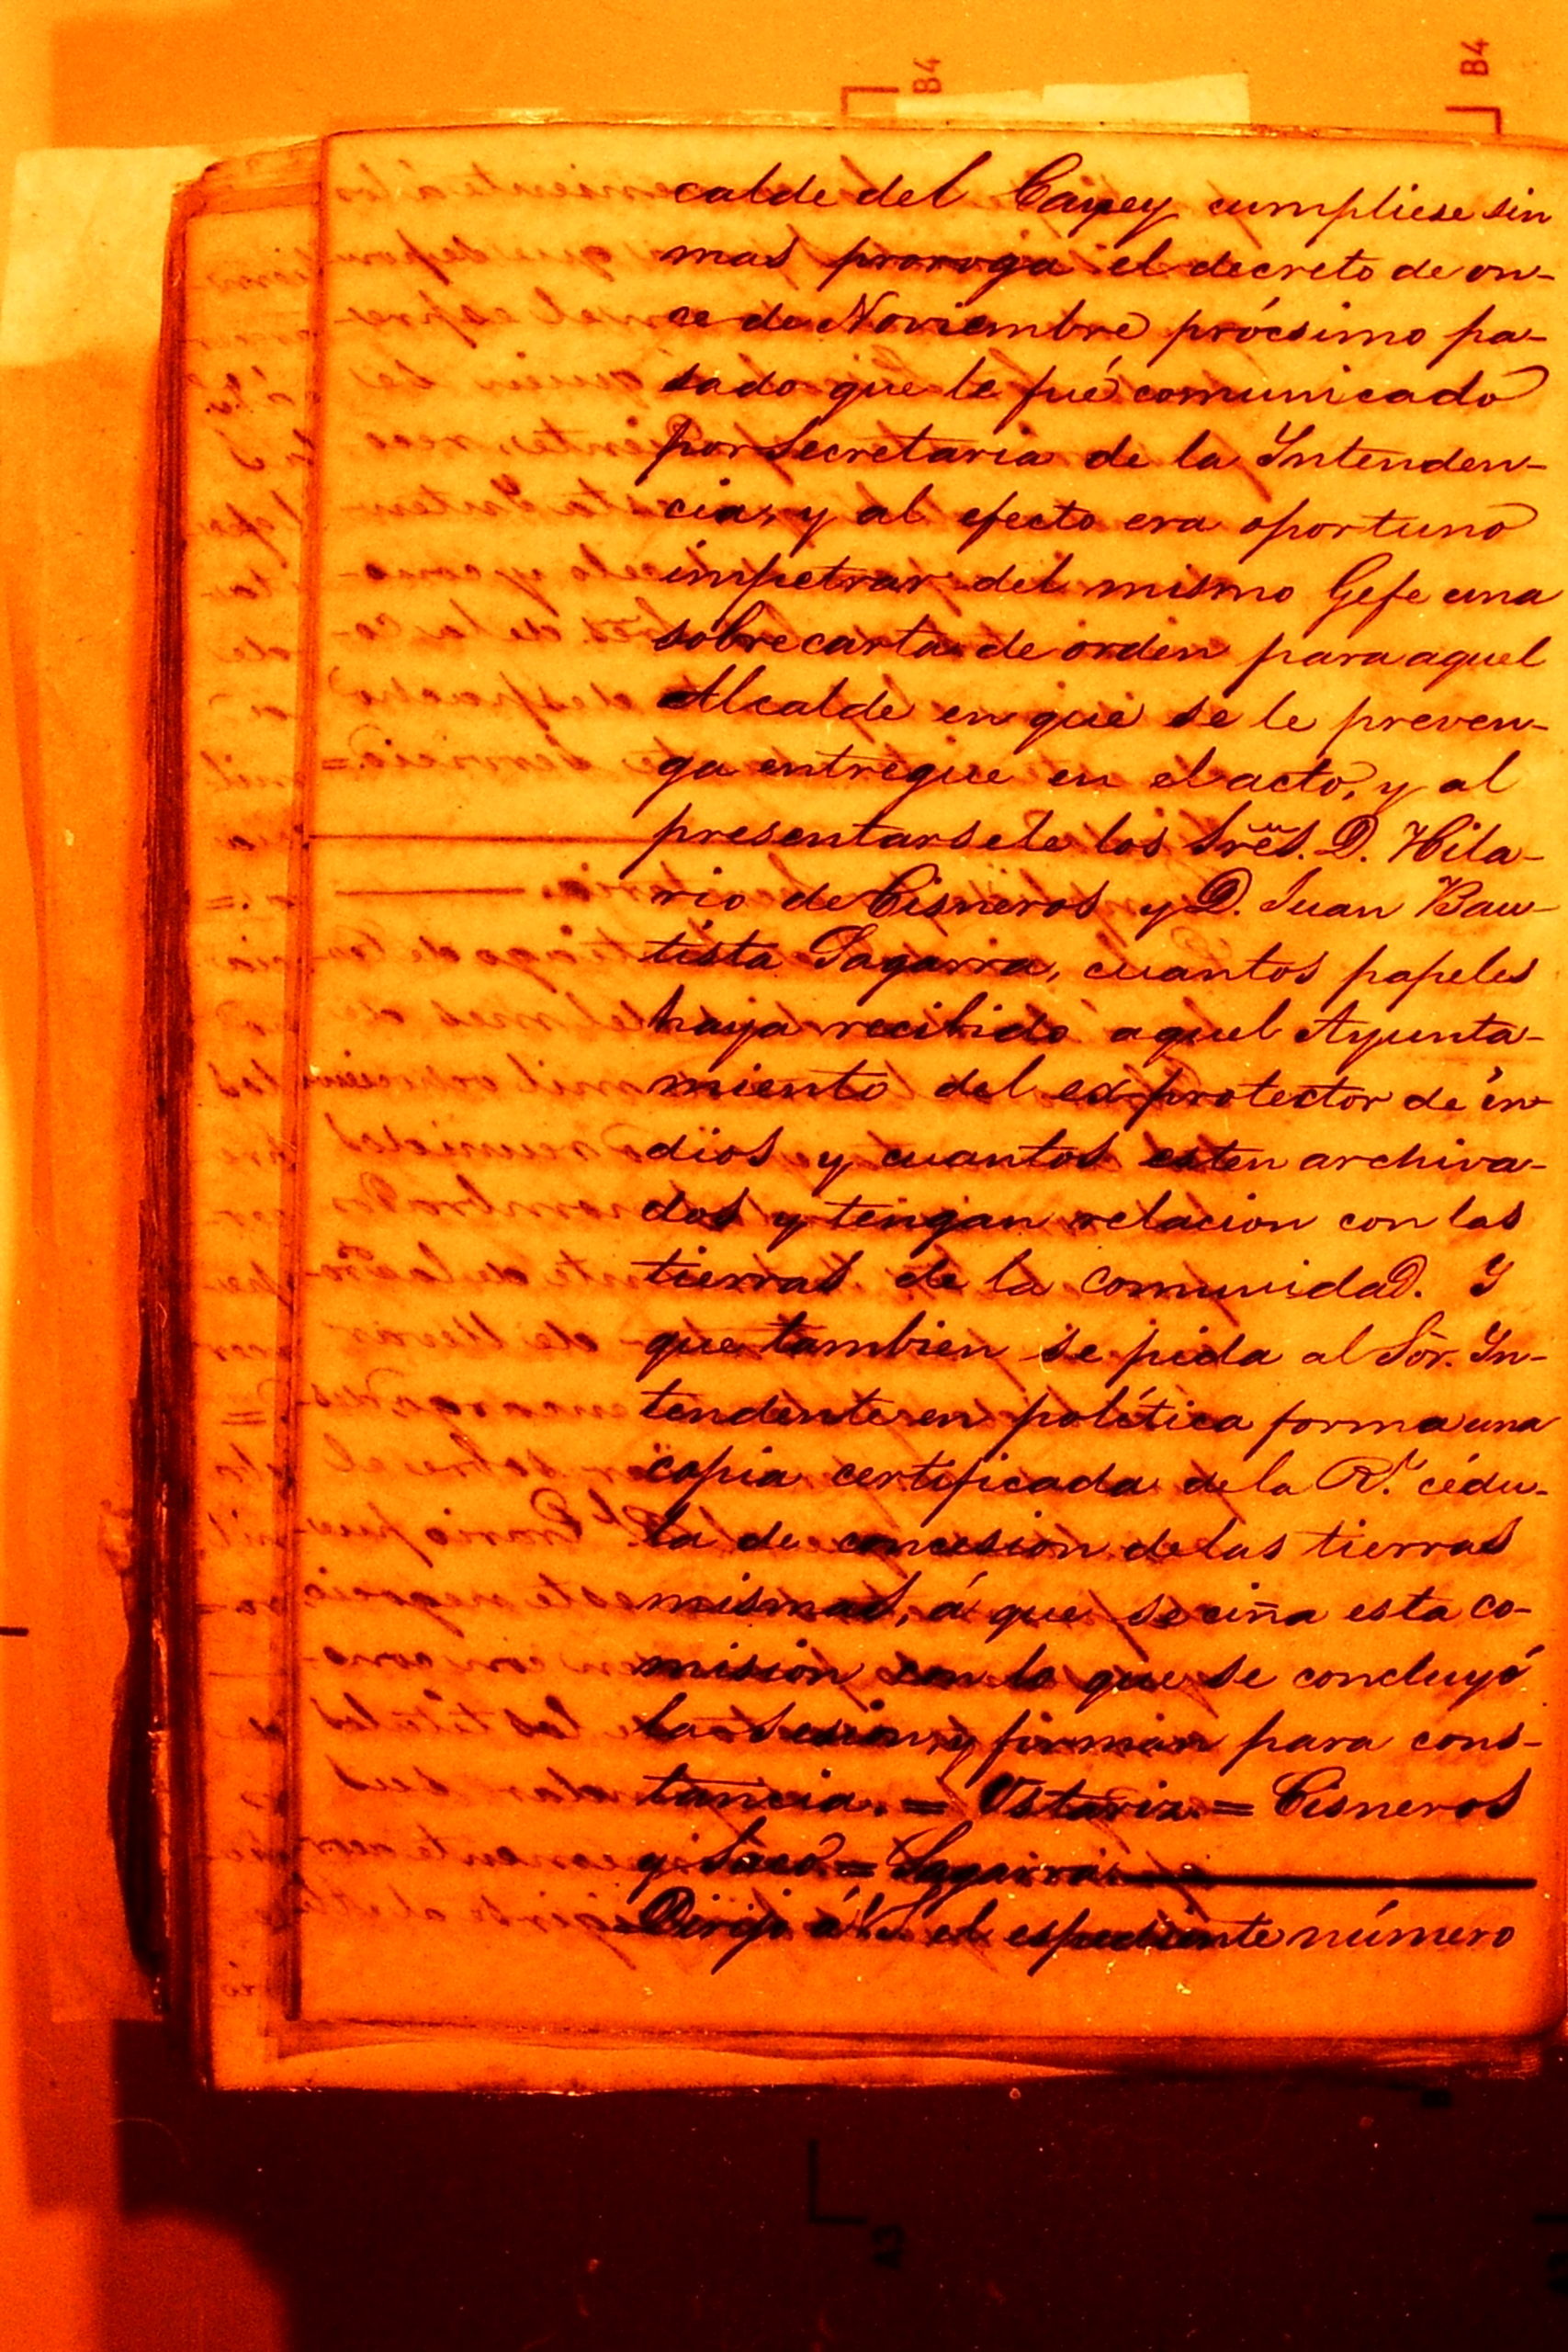 B4
B4
calde del Caney cumpliese sin
mas proroga el decreto de on-
ce de Noviembre prócsimo pa-
sado que le fué comunicado
por Secretaria de la Intenden-
cia, y al efecto era oportuno
impetrar del mismo Gefe una
sobrecarta de orden para aquel
Alcalde en que se le preven-
ga entregue en el acto, y al
presentarsele los Sres. D. Hila-
rio de Cisneros y D. Juan Bau-
tista Sagarra, cuantos papeles
haya recibido aquel Ayunta-
miento del ex-protector de in-
dios y cuantos esten archiva-
dos y tengan relacion con las
tierras de la comunidad. Y
que tambien se pida al Sor. In-
tendente en política forma una
copia certificada de la Rl. cédu-
la de concesion de las tierras
mismas, á que se ciña esta co-
mision con lo que se concluyó
la sesion, y firman para cons-
tancia. = Ustariz. = Cisneros
y Saco = Sagarra.
Dirijo á V.S. el espediente número
A3